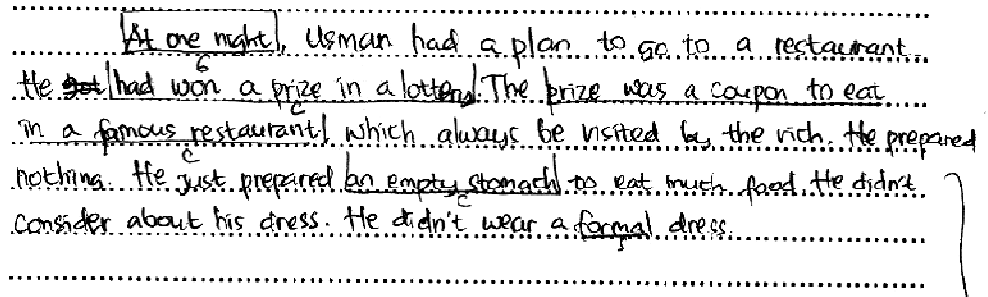 At one night, Usman had a plan to go to a restaurant.
He had won a prize in a lottery. The prize was a coupon to eat
in a famous restaurant, which always be visited by the rich. He prepared
nothing. He just prepared an empty stomach to eat much food. He didn't
consider about his dress. He didn't wear a formal dress.